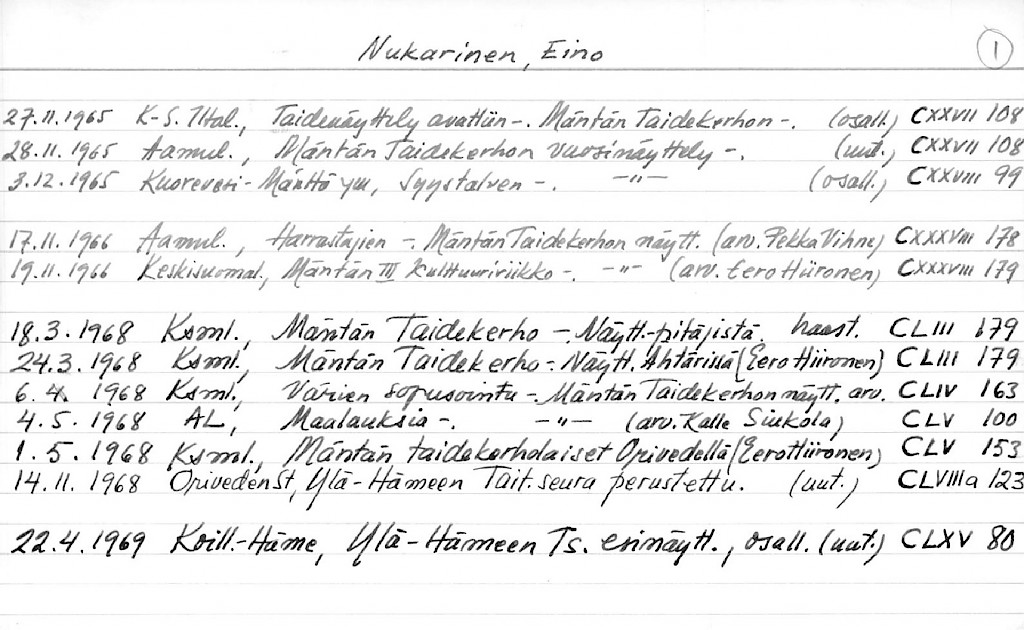 Nukarinen, Eino 1
27.11.1965 K-S. Iltal., Taidenäyttely avattiin -. Mäntän Taidekerhon -. (osall.) CXXVII 108
28.11.1965 Aamul., Mäntän Taidekerhon vuosinäyttely -. (uut.) CXXVII 108
3.12.1965 Kuorevesi-Mänttä ym, Syystalven -. -"- (osall.) CXXVIII 99
17.11.1966 Aamul., Harrastajien -. Mäntän Taidekerhon näytt. (arv. Pekka Vihne) CXXXVIII 178
19.11.1966 Keskisuomal., Mäntän III kulttuuriviikko -. -"- (arv. Eero Hiironen) CXXXVIII 179
18.3.1968 Ksml., Mäntän Taidekerho - Näytt.-pitäjistä, haast. CLIII 179
24.3.1968 Ksml., Mäntän Taidekerho -. Näytt. Ähtärissä (Eero Hiironen) CLIII 179
6.4.1968 Ksml., Värien sopusointu -. Mäntän Taidekerhon näytt. arv. CLIV 163
4.5.1968 AL, Maalauksia -. -"- (arv. Kalle Siukola) CLV 100
1.5.1968 Ksml., Mäntän taidekerholaiset Orivedellä (Eero Hiironen) CLIV 153
14.11.1968 OrivedenSt, Ylä-Hämeen Tait.seura perustettu. (uut.) CLVIIIa 123
22.4.1969 Koill.-Häme, Ylä-Hämeen Ts. ensinäytt., osall. (uut.) CLXV 80